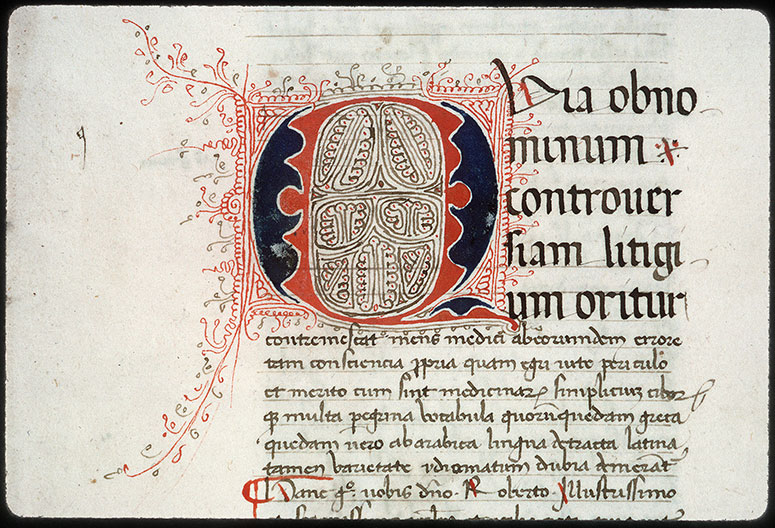 QVia obno
minum x
controuer
siam litigi
um oritur
contremescat mens medici ab eorumdem errore
tam consciencia ꝓpria quam egri uite periculo
et merito cum sint medicinaꝝ simpliciuꝫ ciboꝝ
qꝫ multa peġrina vocabula quoruꝫ quedam greca
quedam uero ab arabica lingua detracta latina
tamen varietate ydiomatum dubia
¶ Hanc gͦ. uobis dño. Roberto. Illustrissimo